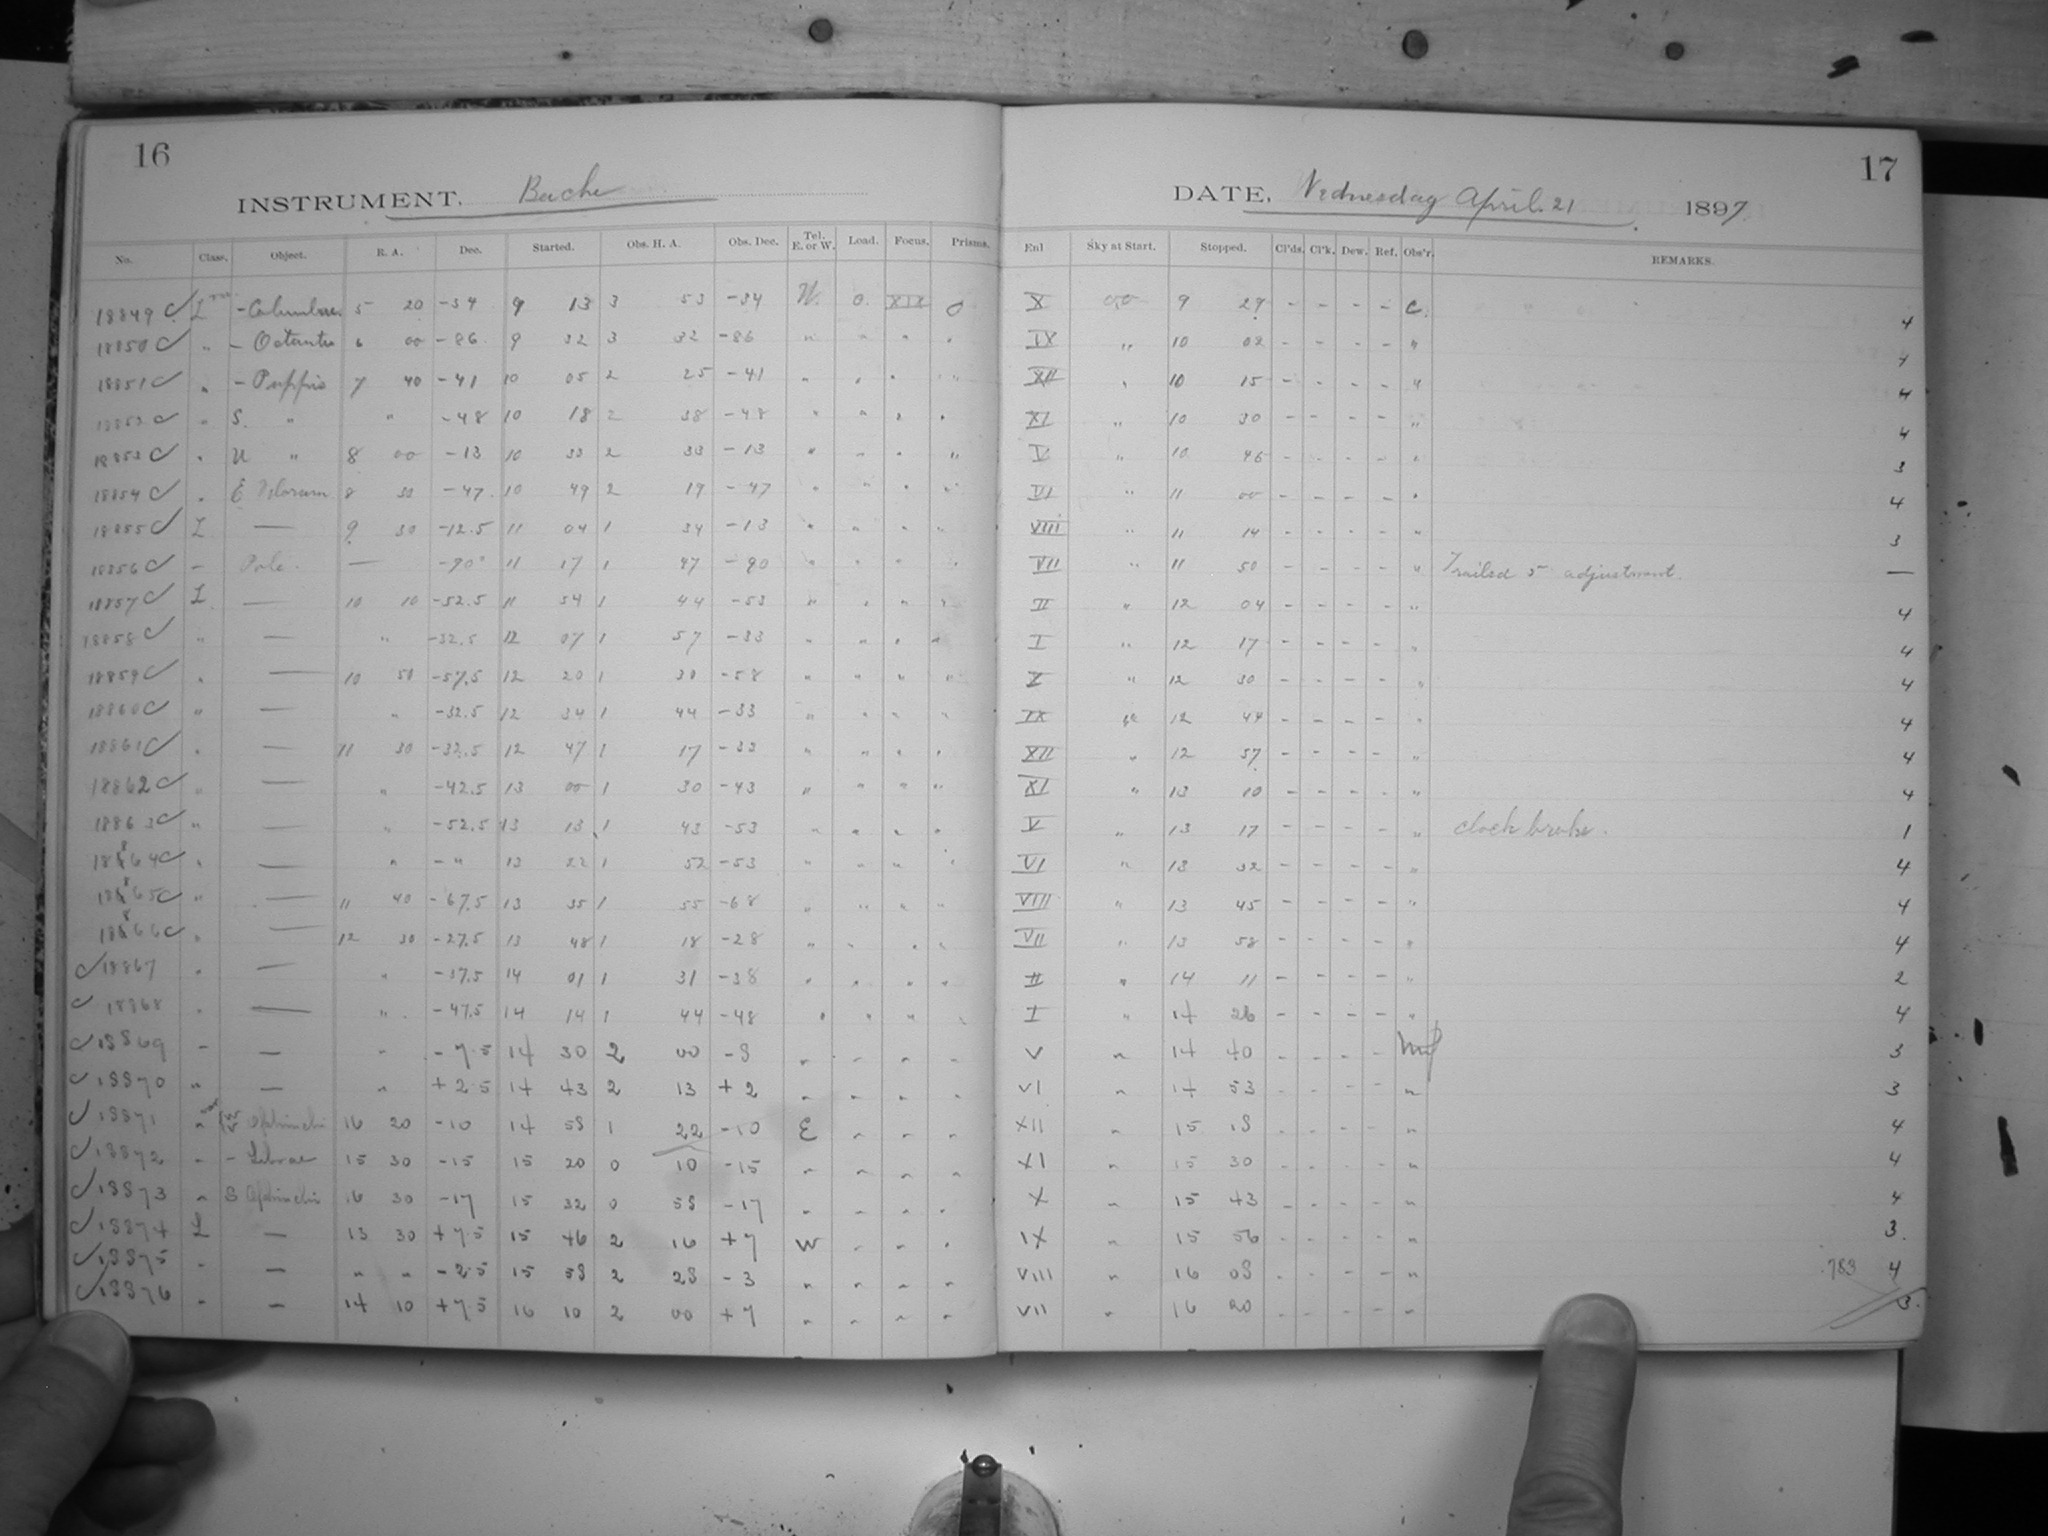 16
INSTRUMENT. Bache
No. Class. Object. R. A. Dec. Started. Obs. H. A. Obs. Dec. Tel. E. or W. Load. Focus. Prisms.
18849 C L - Columbae 5 20 -34 9 13 3 53 -34 W. 0. XIX 0
18850 C " - Octantis 6 00 -86 9 32 3 32 -86 " " " "
18851 C " - Puppis 7 40 -41 10 05 2 25 -41 " " " "
18852 C " S. " " -48 10 18 2 38 -48 " " " "
18853 C " N " 8 00 -13 10 33 2 33 -13 " " " "
18854 C " E Velorum 8 30 -47 10 49 2 19 -47 " " " "
18855 C L — 9 30 -12.5 11 04 1 34 -13 " " " "
18856 C - Pole. — -90° 11 17 1 47 -90 " " " "
18857 C L — 10 10 -52.5 11 54 1 44 -53 " " " "
18858 C " — " -32.5 12 07 1 57 -33 " " " "
18859 C " — 10 50 -57.5 12 20 1 30 -58 " " " "
18860 C " — " -32.5 12 34 1 44 -33 " " " "
18861 C " — 11 30 -32.5 12 47 1 17 -33 " " " "
18862 C " — " -42.5 13 00 1 30 -43 " " " "
18863 C " — " -52.5 13 13 1 43 -53 " " " "
18864 C " — " - " 13 22 1 52 -53 " " " "
18865 C " — 11 40 -67.5 13 35 1 55 -68 " " " "
18866 C " — 12 30 -27.5 13 48 1 18 -28 " " " "
C 18867 " — " -37.5 14 01 1 31 -38 " " " "
C 18868 " — " -47.5 14 14 1 44 -48 " " " "
C 18869 " — " -7.5 14 30 2 00 -8 " " " "
C 18870 " — " +2.5 14 43 2 13 +2 " " " "
C 18871 " Ophiuchi 16 20 -10 14 58 1 22 -10 E " " "
C 18872 " - Librae 15 30 -15 15 20 0 10 -15 " " " "
C 18873 " S Ophiuchi 16 30 -17 15 32 0 58 -17 " " " "
C 18874 L — 13 30 +7.5 15 46 2 16 +7 W " " "
C 18875 " — " " -2.5 15 58 2 28 -3 " " " "
C 18876 " — 14 10 +7.5 16 10 2 00 +7 " " " "
17
DATE. Wednesday April. 21 1897
Enl Sky at Start. Stopped. Cl'ds. Cl'k. Dew. Ref. Obs'r. REMARKS.
X 9 29 - - - - C. 4
IX " 10 02 - - - - " 4
XII " 10 15 - - - - " 4
XI " 10 30 - - - - " 4
V " 10 46 - - - - " 3
VI " 11 00 - - - - " 4
VIII " 11 14 - - - - " 3
VII " 11 50 - - - - " Trailed 5 adjustment. —
II " 12 04 - - - - " 4
I " 12 17 - - - - " 4
X " 12 30 - - - - " 4
IX " 12 44 - - - - " 4
XII " 12 57 - - - - " 4
XI " 13 10 - - - - " 4
V " 13 17 - - - - " clock broke. 1
VI " 13 32 - - - - " 4
VIII " 13 45 - - - - " 4
VII " 13 58 - - - - " 4
II " 14 11 - - - - " 2
I " 14 26 - - - - " 4
V " 14 40 - - - - 3
VI " 14 53 - - - - " 3
XII " 15 18 - - - - " 4
XI " 15 30 - - - - " 4
X " 15 43 - - - - " 4
IX " 15 56 - - - - " 3.
VIII " 16 08 - - - - " 783 4
VII " 16 20 - - - - " 3.